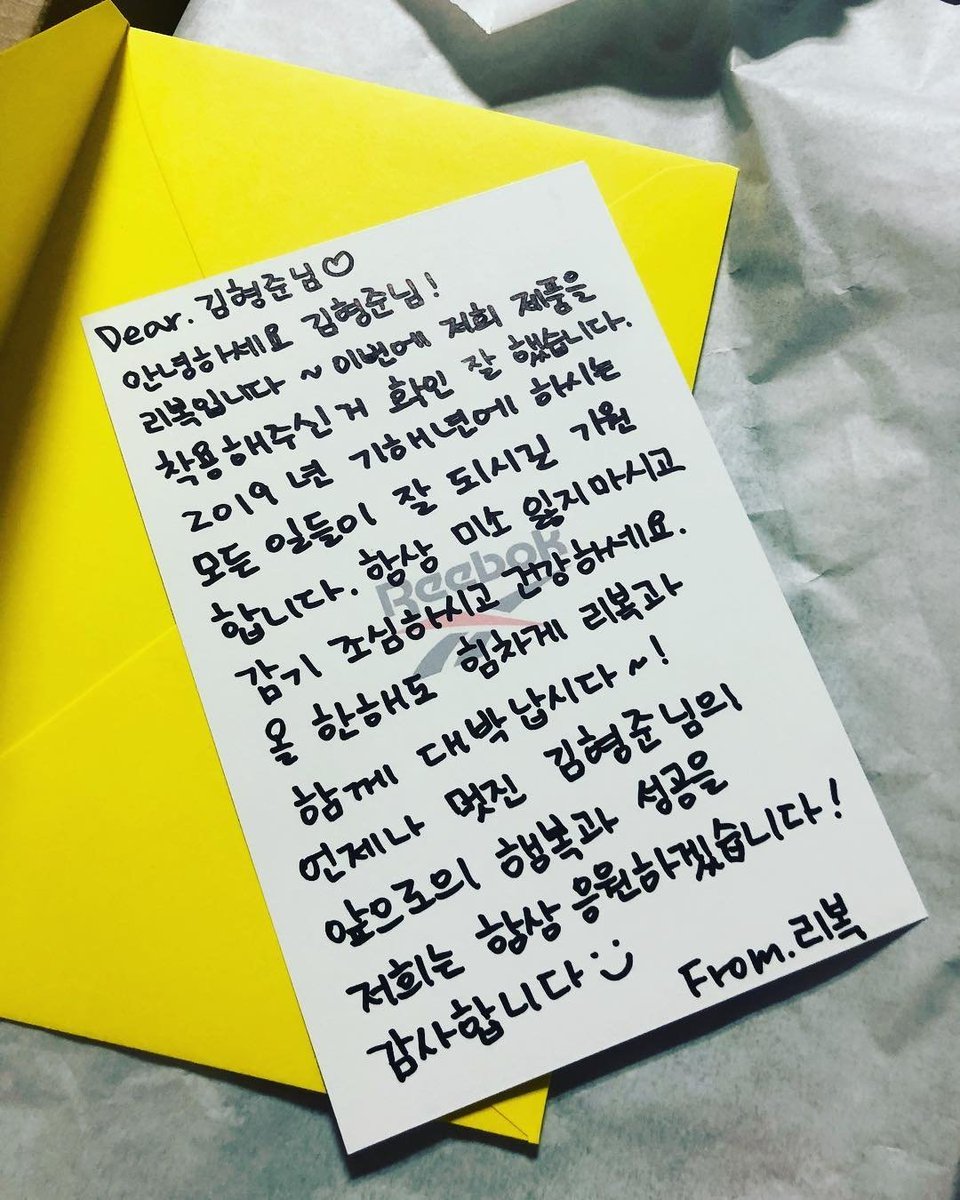 Dear. 김형준님♡
안녕하세요 김형준님!
리복입니다 ~ 이번에 저희 제품을
착용해주신 거 확인 잘 했습니다.
2019 년 기해년에 하시는
모든 일들이 잘 되시길 기원
합니다. 항상 미소 잃지마시고
Reebok
감기 조심하시고 건강하세요.
올 한해도 힘차게 리복과
함께 대박납시다~!
언제나 멋진 김형준님의
앞으로의 행복과 성공을
저희는 항상 응원하겠습니다!
감사합니다 :)
From. 리복